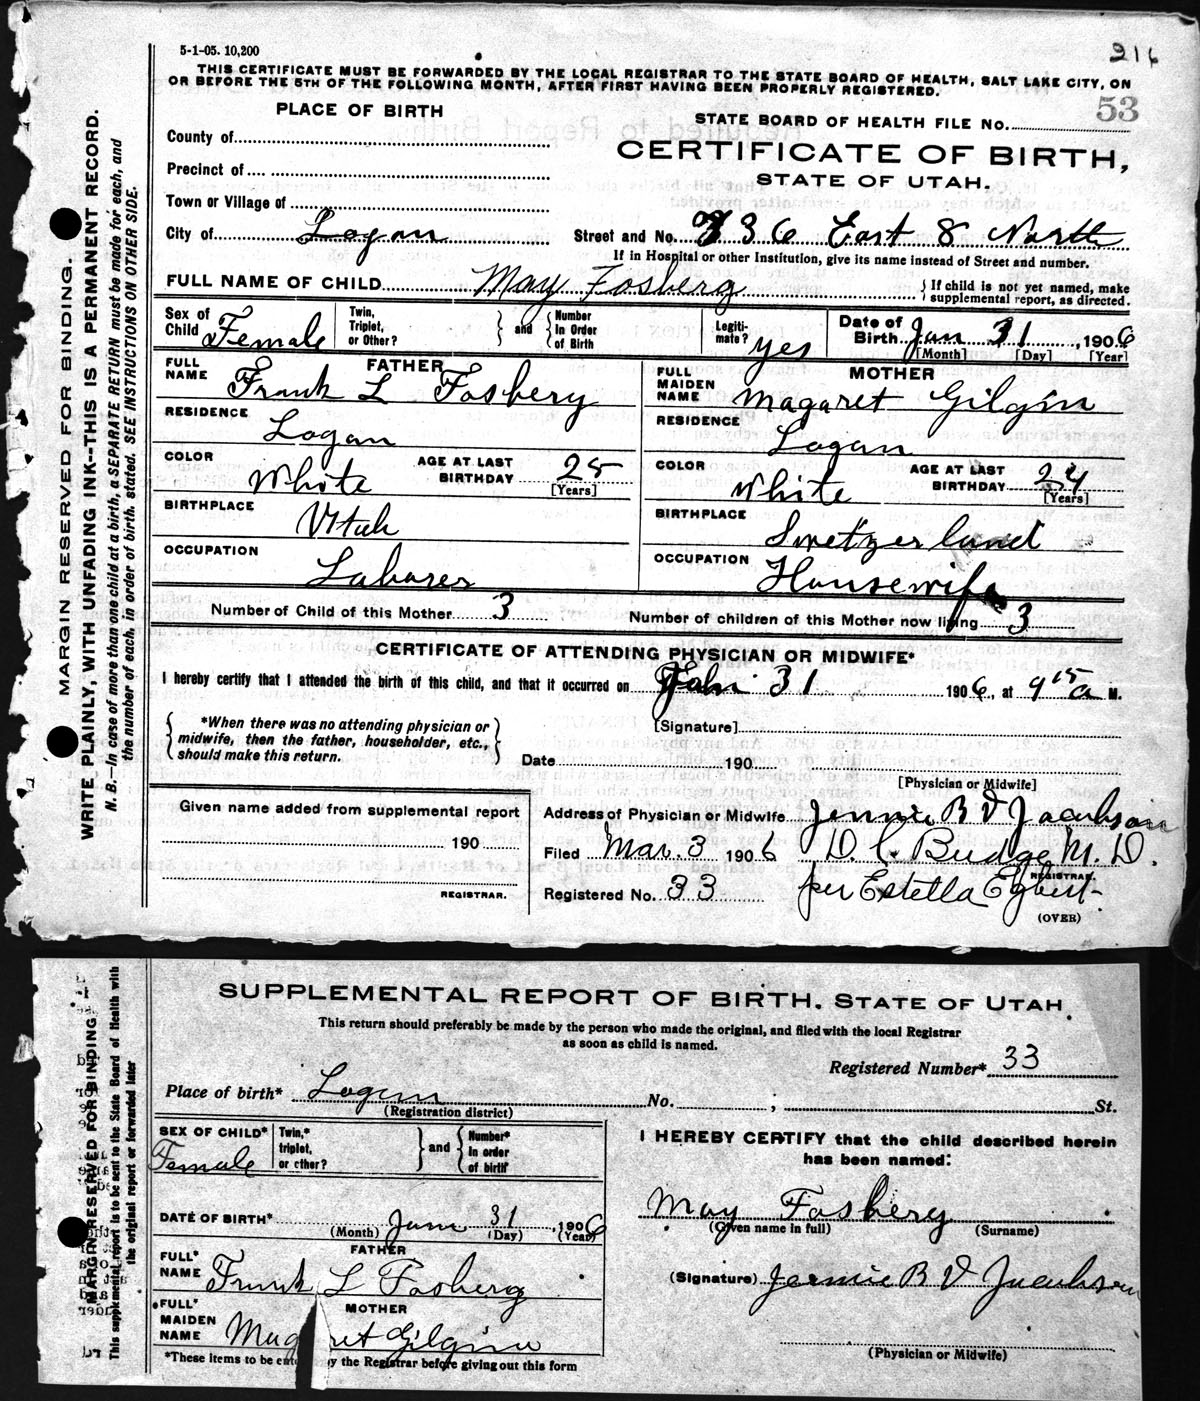 5-1-05. 10,200
216
THIS CERTIFICATE MUST BE FORWARDED BY THE LOCAL REGISTRAR TO THE STATE BOARD OF HEALTH, SALT LAKE CITY, ON
OR BEFORE THE 5TH OF THE FOLLOWING MONTH, AFTER FIRST HAVING BEEN PROPERLY REGISTERED.
MARGIN RESERVED FOR BINDING.
WRITE PLAINLY, WITH UNFADING INK--THIS IS A PERMANENT RECORD.
N. B.—In case of more than one child at a birth, a SEPARATE RETURN must be made for each, and
the number of each, in order of birth, stated. SEE INSTRUCTIONS ON OTHER SIDE.
PLACE OF BIRTH
STATE BOARD OF HEALTH FILE No. 53
County of
CERTIFICATE OF BIRTH,
Precinct of
STATE OF UTAH.
Town or Village of
City of Logan Street and No. 736 East 8 North
If in Hospital or other Institution, give its name instead of Street and number.
FULL NAME OF CHILD May Fosberg { If child is not yet named, make
supplemental report, as directed.
Sex of Child Female
Twin, Triplet, or Other? } and { Number In Order of Birth
Legiti-mate? yes
Date of Birth Jan 31, 1906
[Month] [Day] [Year]
FATHER
FULL NAME Frank L Fosbery
RESIDENCE Logan
COLOR White AGE AT LAST BIRTHDAY 25 [Years]
BIRTHPLACE Utah
OCCUPATION Laborer
MOTHER
FULL MAIDEN NAME Magaret Gilgin
RESIDENCE Logan
COLOR White AGE AT LAST BIRTHDAY 24 [Years]
BIRTHPLACE Swetzerland
OCCUPATION Housewife
Number of Child of this Mother 3 Number of children of this Mother now living 3
CERTIFICATE OF ATTENDING PHYSICIAN OR MIDWIFE*
I hereby certify that I attended the birth of this child, and that it occurred on 31 1906, at 9 15 a M.
{ *When there was no attending physician or
midwife, then the father, householder, etc.,
should make this return. }
[Signature]
Date 190
[Physician or Midwife]
Given name added from supplemental report
190
REGISTRAR.
Address of Physician or Midwife Jennie B V Jacobson
Filed Mar. 3 1906 D. C. Budge M. D.
REGISTRAR.
Registered No. 33 per Estella Egbert
(OVER)
SUPPLEMENTAL REPORT OF BIRTH. STATE OF UTAH.
This return should preferably be made by the person who made the original, and filed with the local Registrar
as soon as child is named.
MARGIN RESERVED FOR BINDING.
This supplemental report is to be sent to the State Board of Health with
the original report or forwarded later
Registered Number* 33
Place of birth* Logan No. ; St.
(Registration district)
SEX OF CHILD* Female
Twin,* triplet, or other? } and { Number* In order of birth
DATE OF BIRTH* Jan 31, 1906
(Month) (Day) (Year)
FATHER
FULL* NAME Frank L Fosberg
MOTHER
FULL* MAIDEN NAME Mag ret Gilginn
*These items to be ente y the Registrar before giving out this form
I HEREBY CERTIFY that the child described herein
has been named:
May Fosbery
(Given name in full) (Surname)
(Signature) Jennie B V Jacobson
(Physician or Midwife)